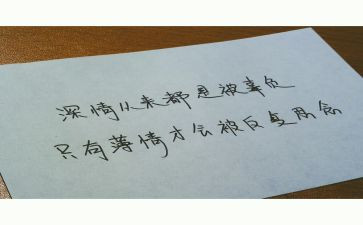 深情从来都是被辜负
只有薄情才会被反复思念